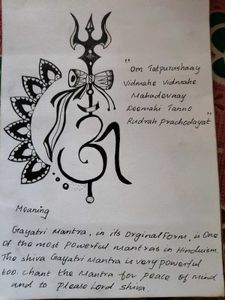 "Om Tatpurushaay
Vidmahe Vidmahe
Mahadevaay
Deemahi Tanno
Rudrah Prachodayat"
ॐ
Meaning
Gayatri Mantra, in its Orginal Form, is One
Of the most Powerful mantras in Hinduism.
The shiva Gayatri Mantra is very powerful
too. Chant the Mantra for peace of mind
and to please Lord shiva.